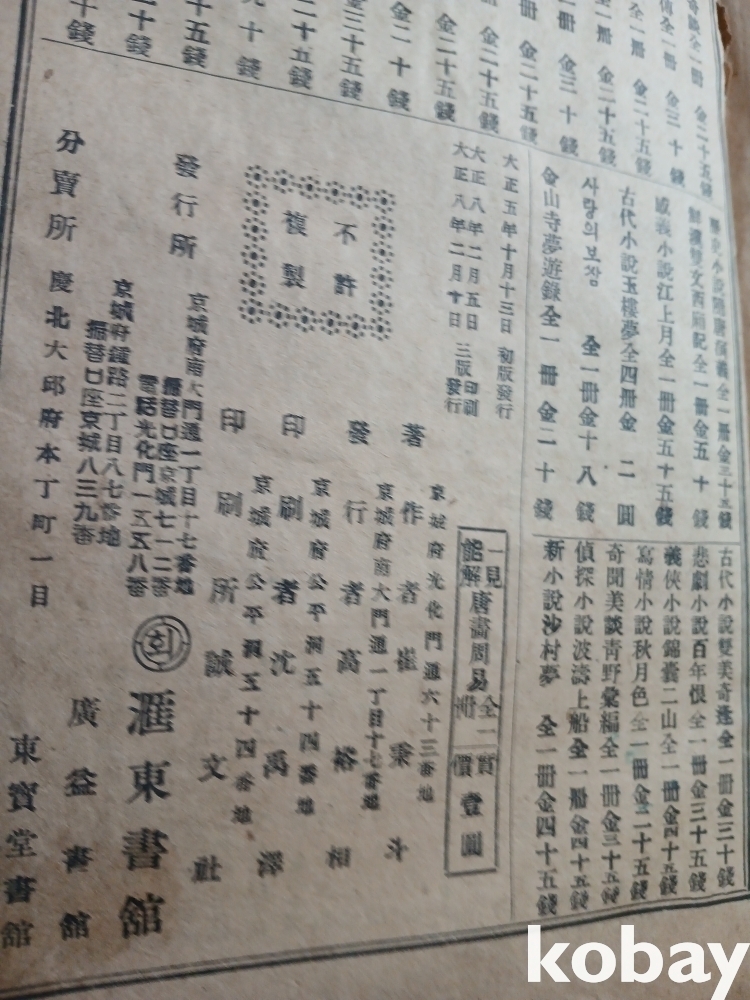 金二十五錢
全一冊 金三十錢
全一冊 金二十五錢
全一冊 金二十五錢
一冊 金三十錢
冊 金二十五錢
金二十五錢
金二十五錢
金二十錢
金三十五錢
二十五錢
十錢
十五錢
二十錢
十錢
歷史小說隨唐演義 全一冊金三十五錢
鮮漢雙文西廂記 全一冊金五十錢
義小說江上月 全一冊金五十五錢
古代小說玉樓夢 全四冊金二圓
사랑의보장 全一冊金十八錢
金山寺夢遊錄 全一冊 金二十錢
古代小說雙美奇逢 全一冊金三十錢
悲劇小說百年恨 全一冊金三十五錢
義俠小說錦囊二山 全一冊金四十五錢
寫情小說秋月色 全一冊金二十五錢
奇聞美談靑野彙編 全一冊金三十五錢
偵探小說波濤上船 全一冊金四十五錢
新小說沙村夢 全一冊金四十五錢
大正五年十月十三日 初版發行
大正八年二月五日 三版印刷
大正八年二月十日 三版發行
不許
複製
一見能解 唐畵周易 全一冊
賣價 壹圓
京城府光化門通六十三番地
著作者 崔秉斗
京城府南大門通一丁目十七番地
發行者 高裕相
京城府公平洞五十四番地
印刷者 沈禹澤
京城府公平洞五十四番地
印刷所 誠文社
京城府南大門通一丁目十七番地
發行所
振替口座京城七一二番
電話光化門一五五八番
회
滙東書館
京城府鍾路二丁目八七番地
振替口座京城八三九番
廣益書館
分賣所 慶北大邱府本丁町一目
東寶堂書館
kobay